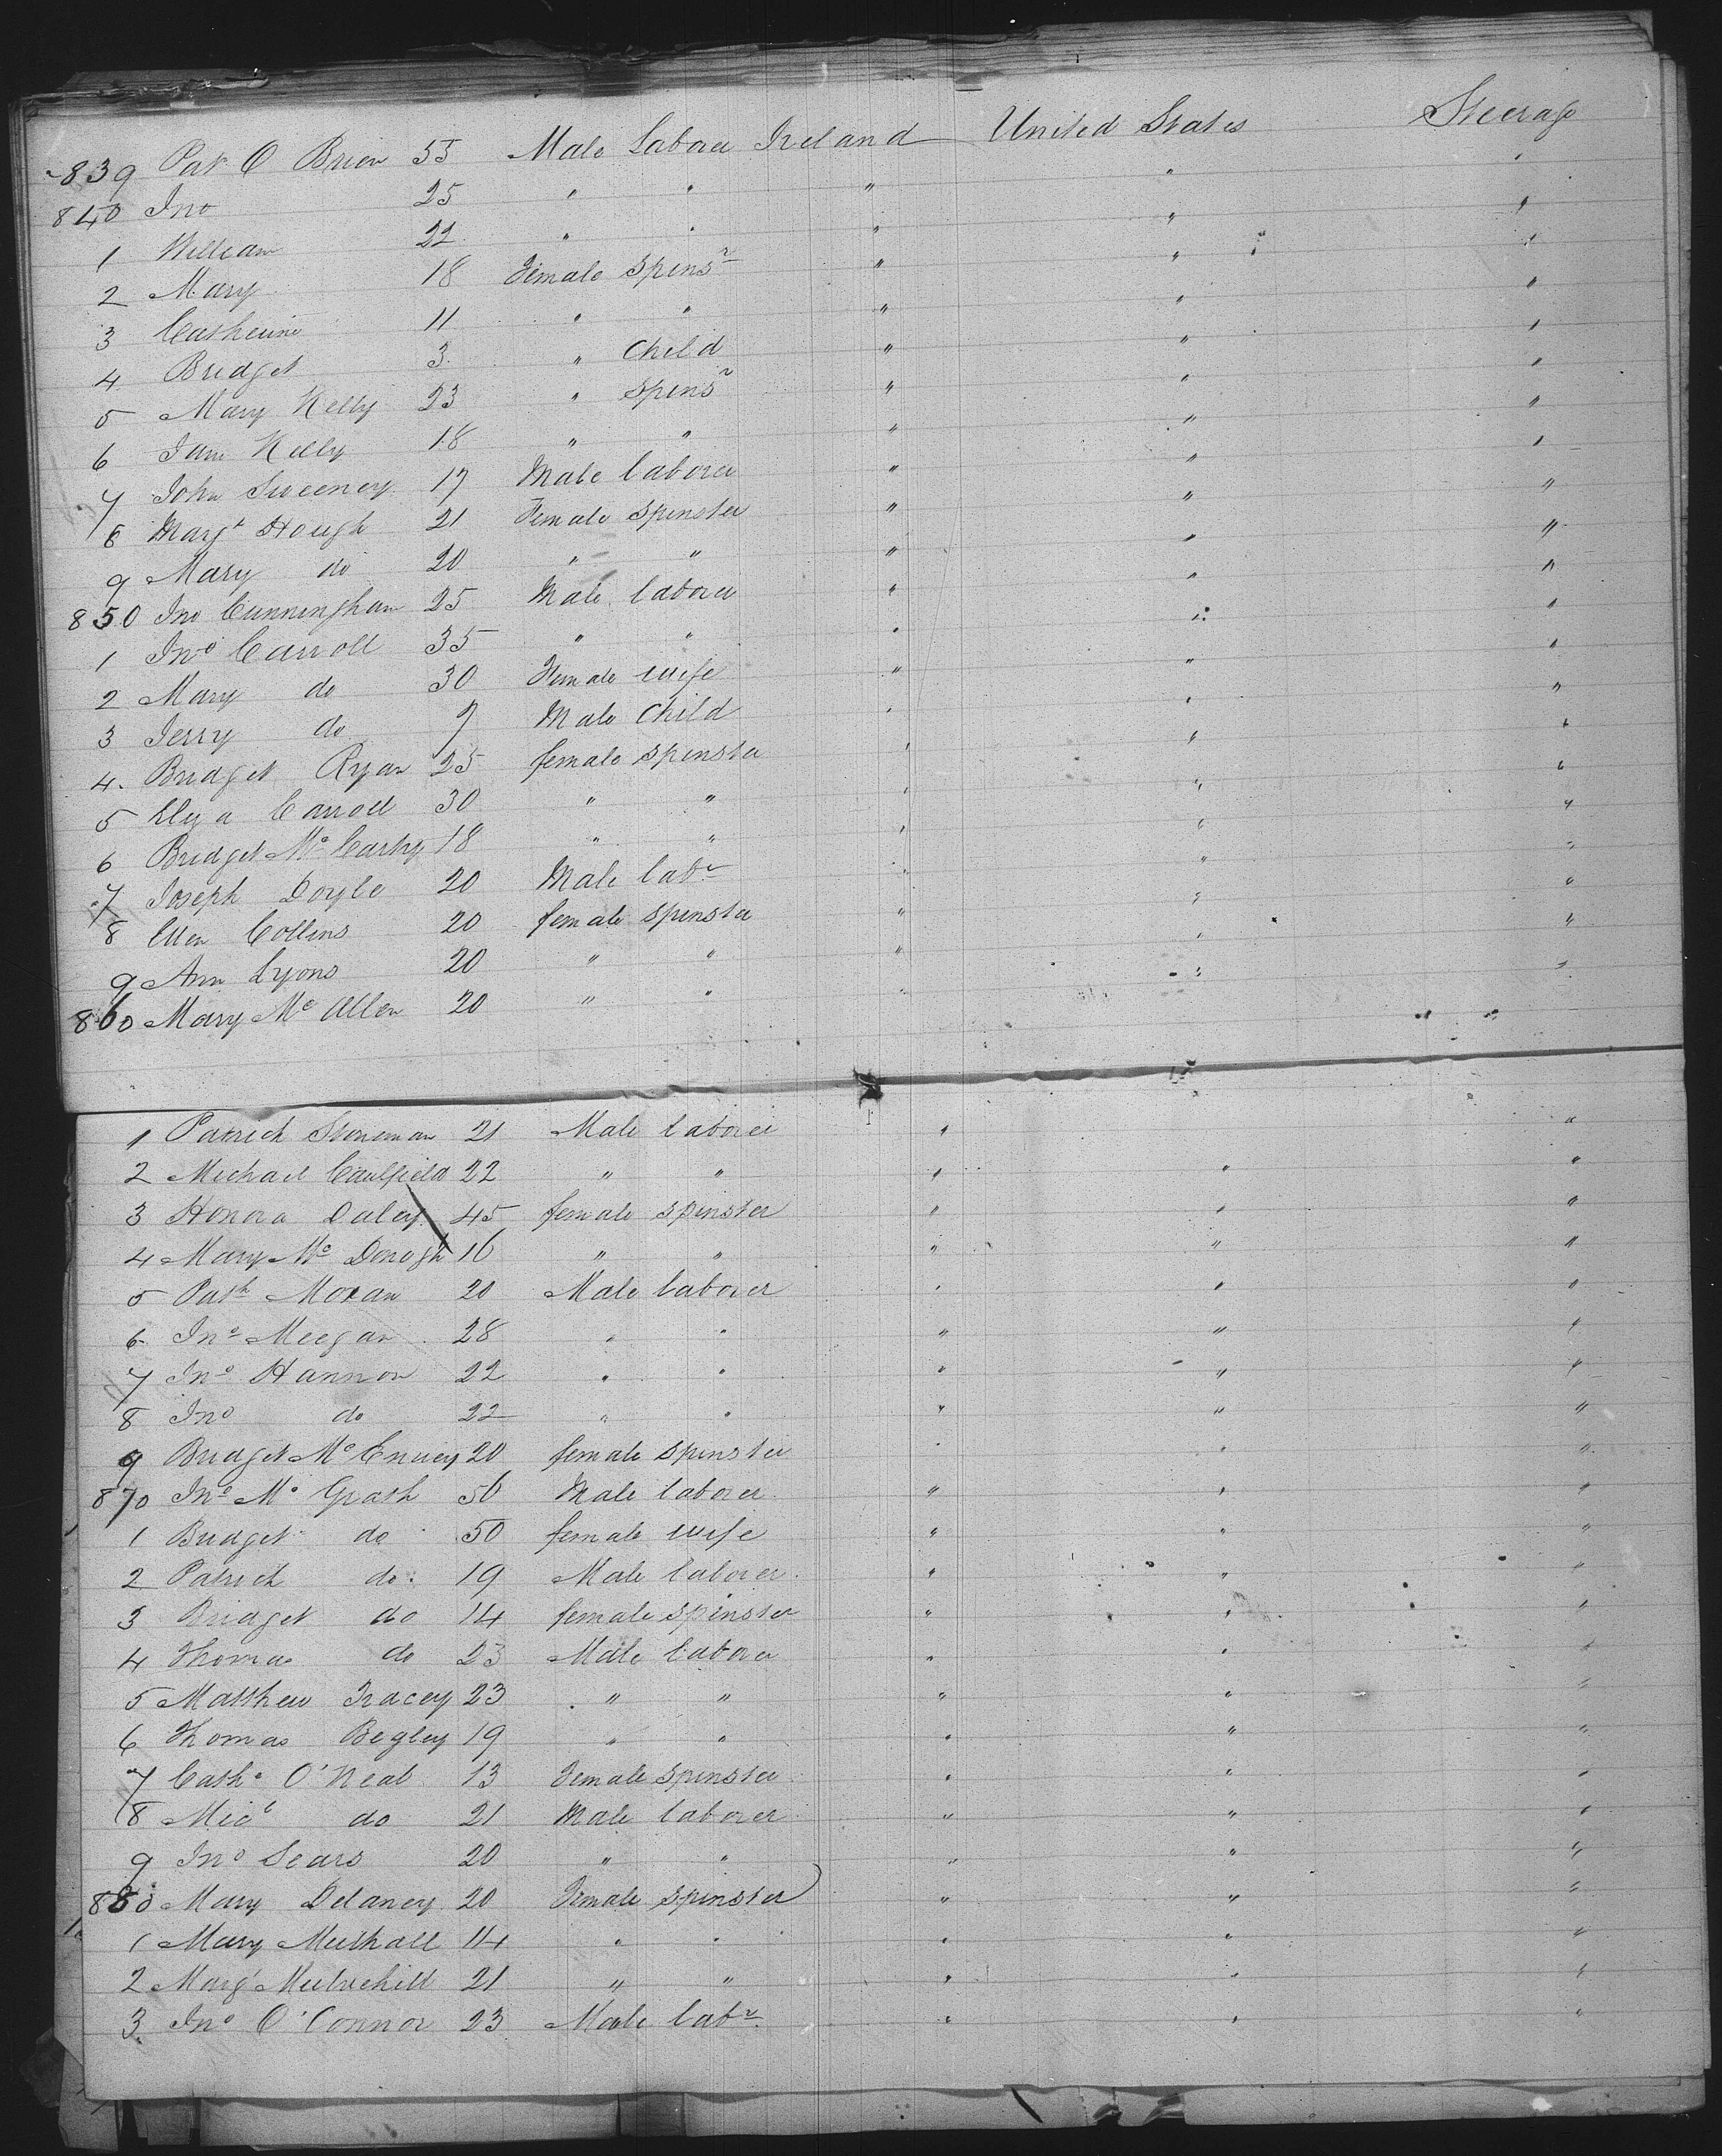 839 Pat O Brien 55 Male Laborer Ireland United States Steerage
840 Jno 25 " " " " "
1 William 22 " " " " "
2 Mary 18 Female Spinsr " " "
3 Catherine 11 " " " " "
4 Bridget 3 " Child " " "
5 Mary Kelly 23 " Spinsr " " "
6 Jane Kelly 18 " " " " "
7 John Sweeney 17 Male laborer " " "
8 Margt Hough 21 Female Spinster " " "
9 Mary do 20 " " " " "
850 Jno Cunningham 25 Male laborer " " "
1 Jno Carroll 35 " " " " "
2 Mary do 30 Female wife " " "
3 Jerry do 7 Male Child " " "
4. Bridget Ryan 25 female spinster " " "
5 Eliza Carroll 30 " " " " "
6 Bridget Mc Carthy 18 " " " " "
7 Joseph Doyle 20 Male labr " " "
8 Ellen Collins 20 female spinster " " "
9 Ann Lyons 20 " " " " "
860 Mary Mc Allen 20 " " " " "
1 Patrick Stoneman 21 Male laborer " "
2 Michael Caulfield 22 " " " " "
3 Honora Daley 45 female spinster " " "
4 Mary Mc Donogh 16 " " " " "
5 Path Moran 20 Male laborer " " "
6 Jno Meegan 28 " " " " "
7 Jno Hannon 22 " " " " "
8 Jno do 22 " " " " "
9 Bridget Mc 20 female spinster " " "
870 Jno Mc Grath 50 Male laborer " " "
1 Bridget do 50 female wife " " "
2 Patrick do 19 Male laborer " " "
3 Bridget do 14 female spinster " " "
4 Thomas do 23 Male laborer " " "
5 Matthew Tracey 23 " " " " "
6 Thomas Begley 19 " " " " "
7 Cathe O'Neal 13 Female spinster " " "
8 Micl do 21 Male laborer " " "
9 Jno Sears 20 " " " " "
880 Mary Delaney 20 Female spinster " " "
1 Mary Mulhall 14 " " " " "
2 Margt Mulvehill 21 " " " " "
3 Jno O'Connor 23 Male labr " " "